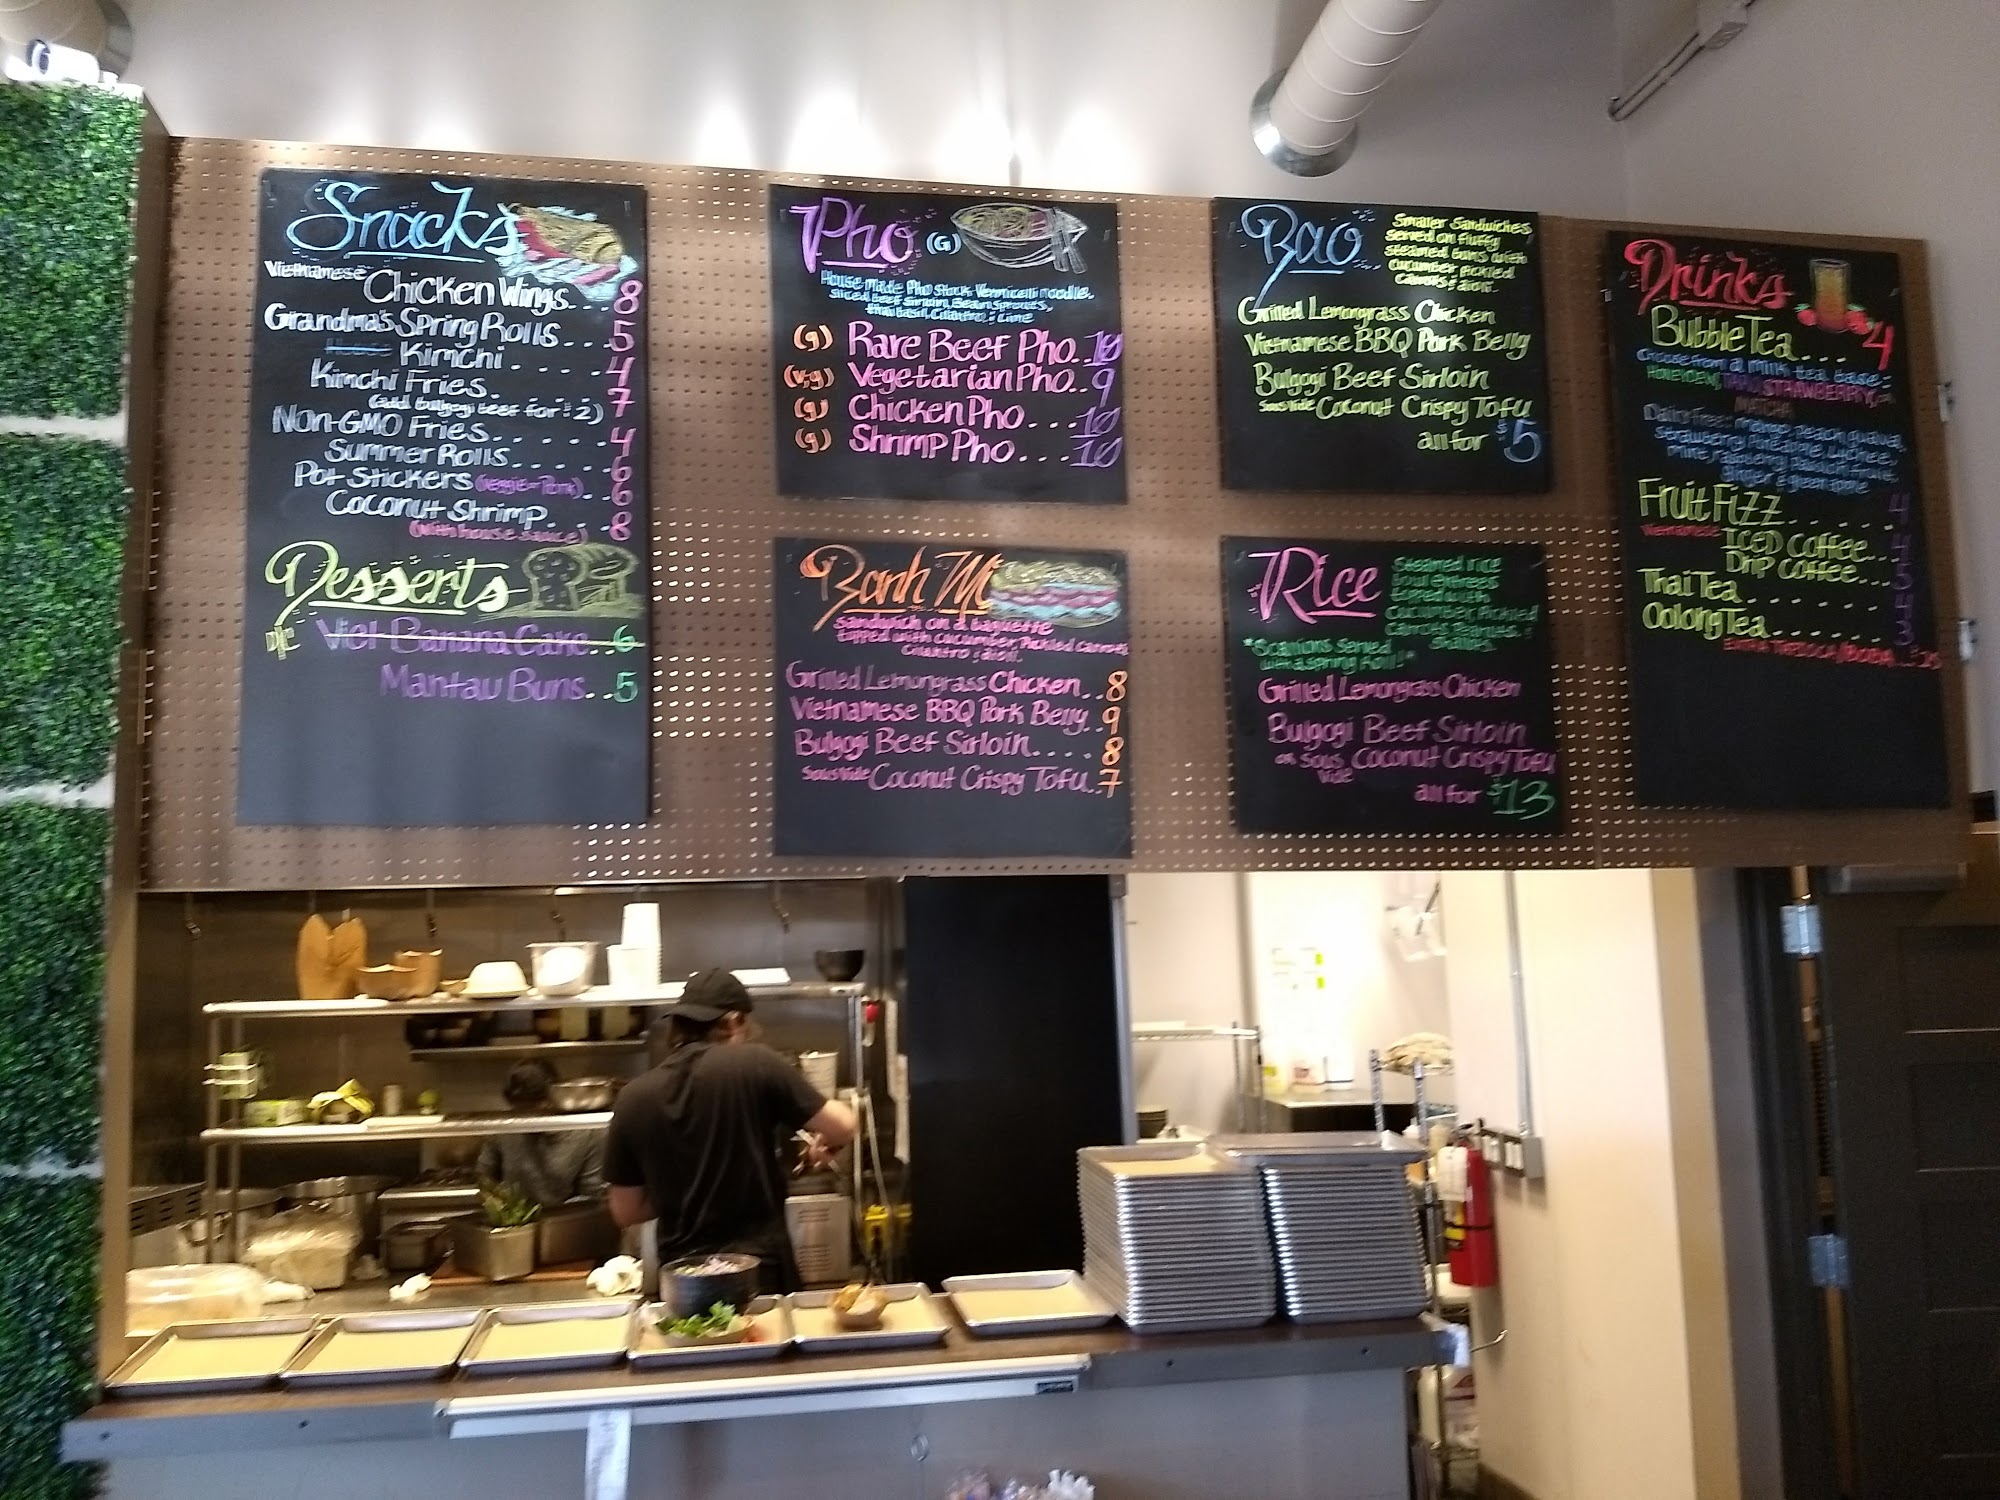 Snacks
Vietnamese Chicken Wings.. 8
Grandma's Spring Rolls... 5
House Kimchi.... 4
Kimchi Fries. 7
(add bulgogi beef for $2)
Non-GMO Fries...... 4
Summer Rolls..... 6
Pot Stickers (veggie or Pork).. 6
Coconut Shrimp.... 8
(with house sauce)
Desserts
Viet Banana Cake.. 6
Mantau Buns.. 5
Pho (G)
House Made Pho Stock, Vermicelli noodle,
Sliced Beef Sirloin, Bean Sprouts,
thai basil, Cilantro & Lime
(g) Rare Beef Pho.. 10
(v,g) Vegetarian Pho.. 9
(g) Chicken Pho... 10
(g) Shrimp Pho.... 10
Banh Mi
Sandwich on a baguette
topped with cucumber, Pickled carrots
Cilantro & aioli.
Grilled Lemongrass Chicken.. 8
Vietnamese BBQ Pork Belly.. 9
Bulgogi Beef Sirloin.... 8
Sous Vide Coconut Crispy Tofu.. 7
Bao
Smaller Sandwiches
served on fluffy
steamed buns with
cucumber, pickled
carrots & aioli.
Grilled Lemongrass Chicken
Vietnamese BBQ Pork Belly
Bulgogi Beef Sirloin
Sous Vide Coconut Crispy Tofu
all for $5
Rice
Steamed rice
served with
cucumber, Pickled
Grilled Lemongrass Chicken
Bulgogi Beef Sirloin
or Sous Vide Coconut Crispy Tofu
all for $13
Drinks
Bubble Tea... 4
Choose from a milk tea base:
HONEYDEW, TARO, STRAWBERRY, or
MATCHA
Dairy Free: mango, peach, guava,
strawberry, pineapple, lychee,
mint, raspberry, passion fruit,
ginger & green apple
Fruit Fizz...... 4
Vietnamese Iced Coffee... 4
Drip Coffee.... 3
Thai Tea...... 4
Oolong Tea....... 3
EXTRA TAPIOCA/BOBA